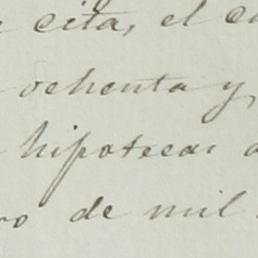 cita, el
ochenta y,
hipotecas
de mil